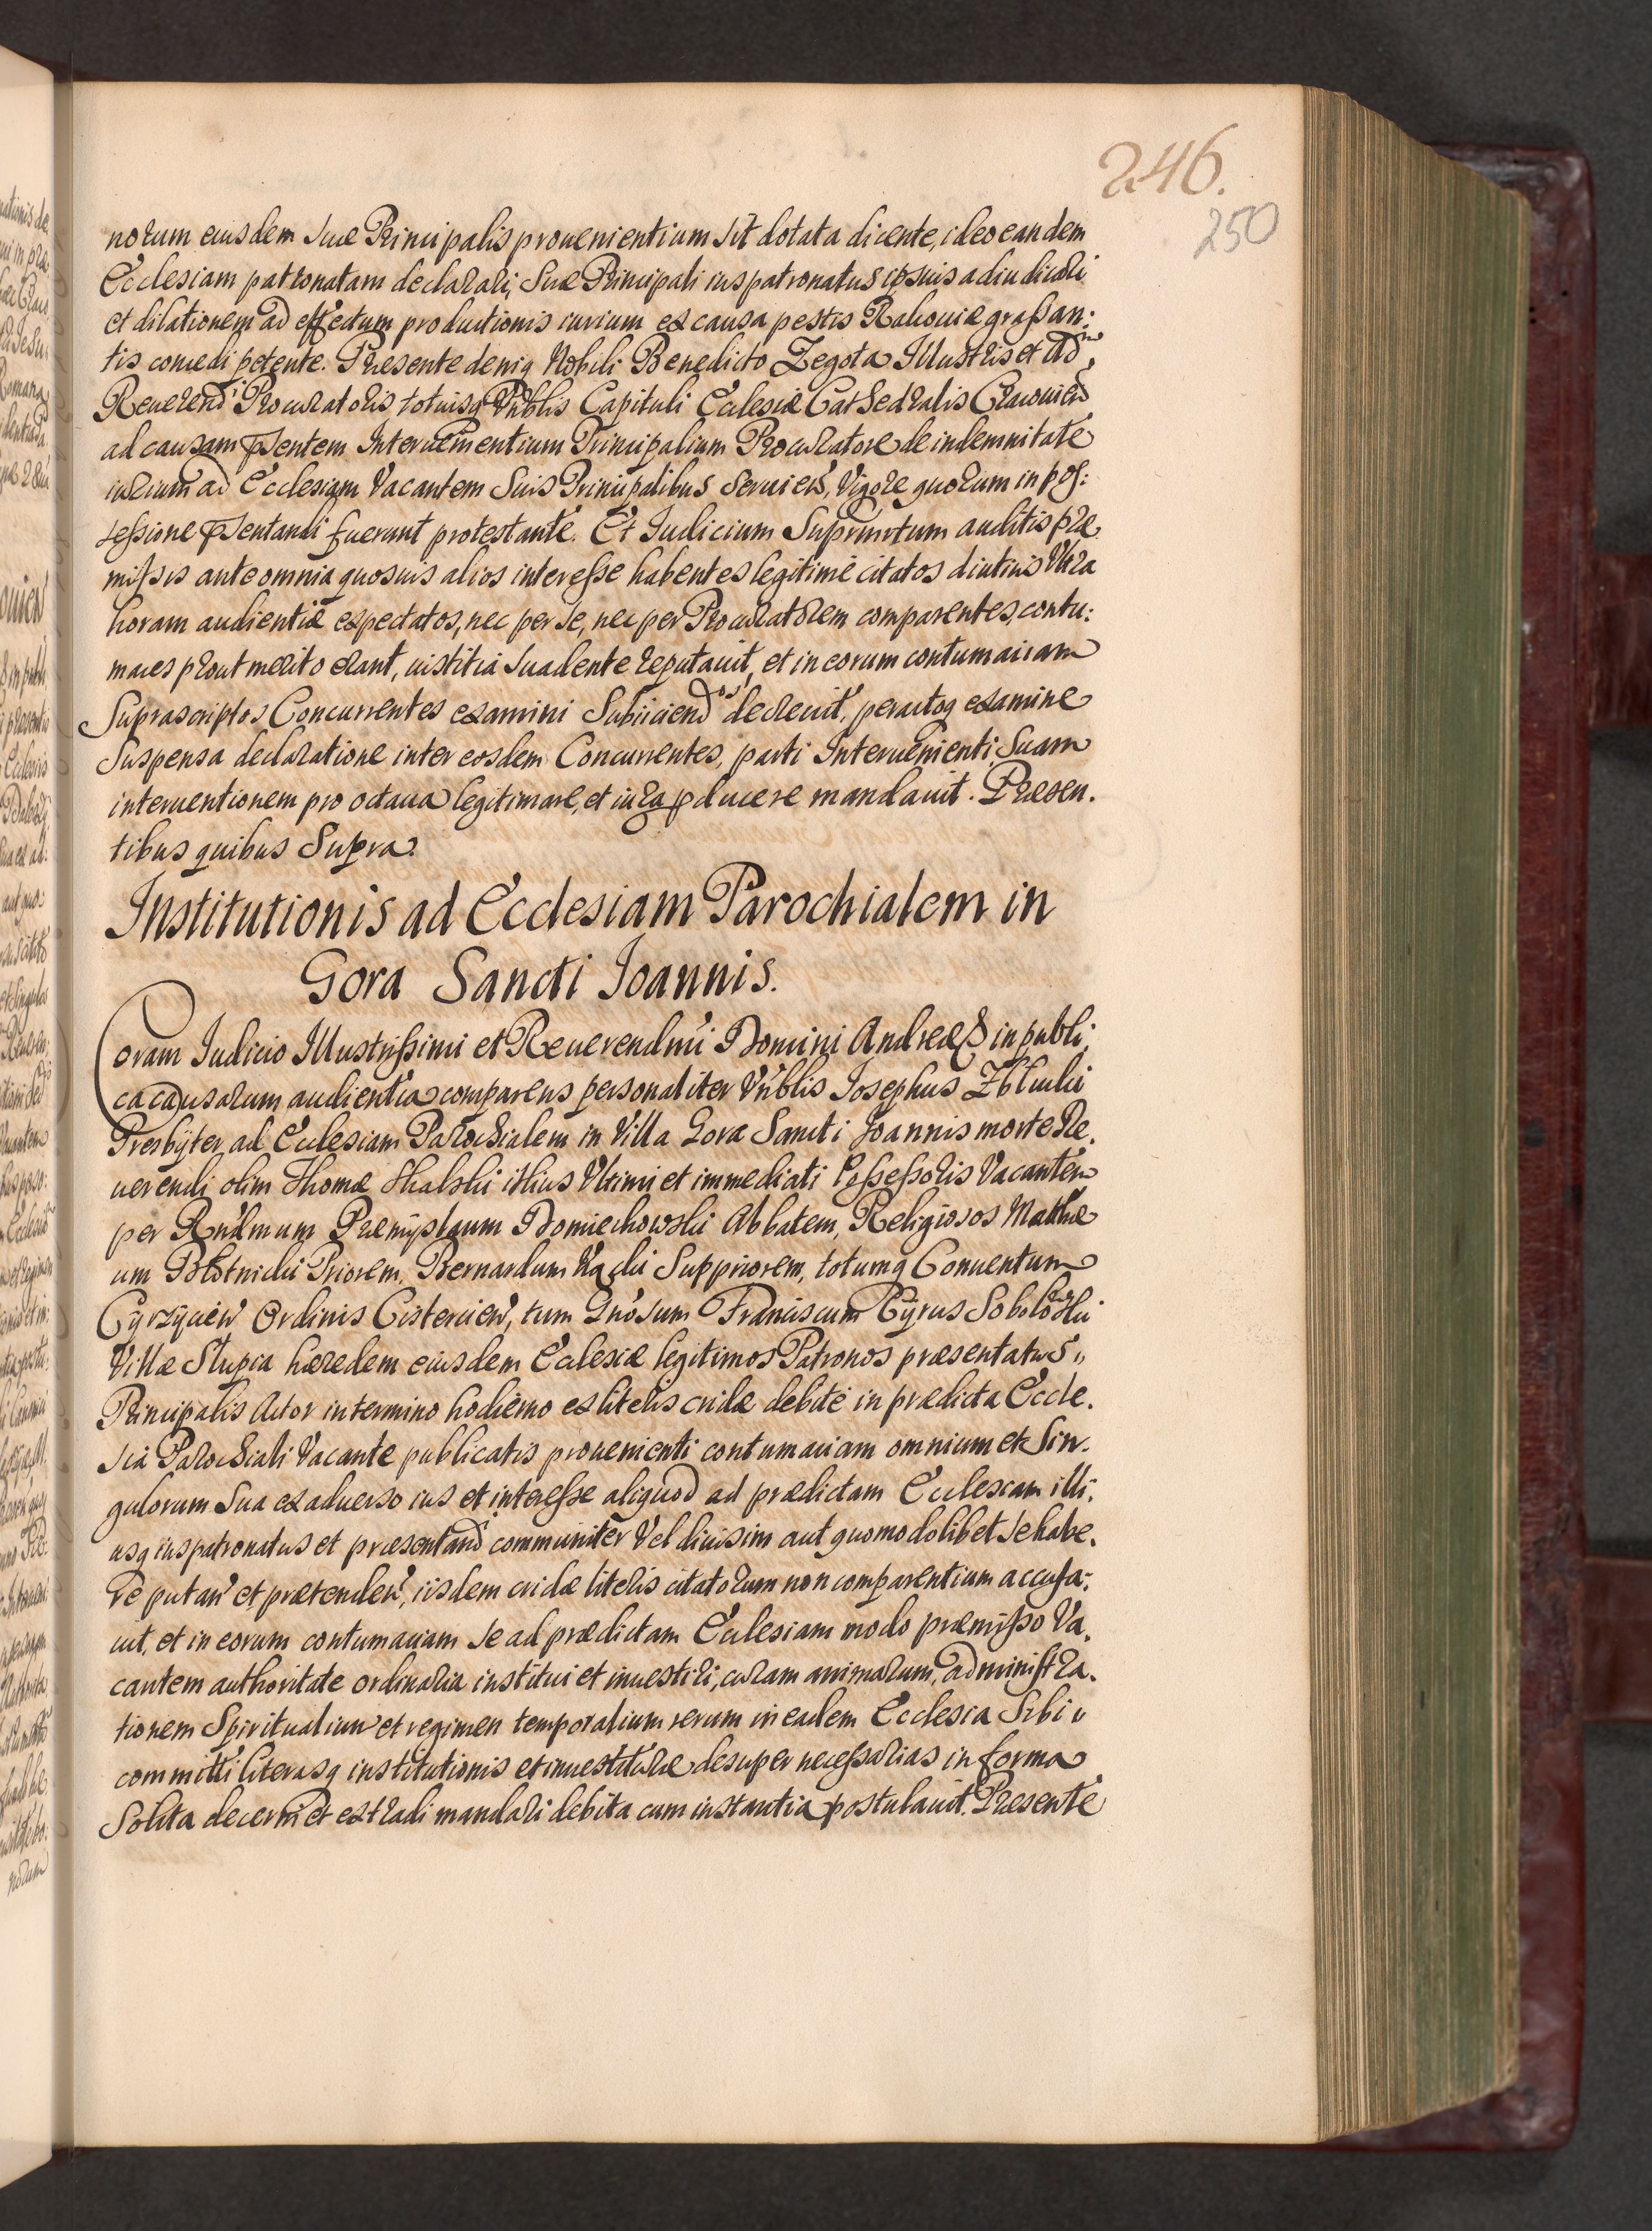 246.
250
norum eiusdem suæ Principalis prouenientium sit dotata dicente, ideo eandem
Ecclesiam patronatam declarari, suæ Principali ius patronatus ipsius adiudicari
et dilationem ad effectum productionis iurium ex causa pestis Rakouiæ graßan:
tis concedi petente. Præsente deniq Nobili Benedicto Zegota Illustris et Adm
Reuerendi Procuratoris totiusq Vnblis Capituli Ecclesiæ Cathedralis Cracouien
ad causam pñsentem Interuenientium Principalium Procuratore de indemnitate
iurium ad Ecclesiam Vacantem Suis Principalibus Seruien, Vigore quorum in pos:
seßione pñsentandi fuerunt protestante. Et Iudicium Suprascriptum auditis præ
mißis ante omnia quosuis alios intereße habentes legitime citatos diutius Vltra
horam audientiæ expectatos, nec per se, nec per Procuratorem comparentes, contu:
maces prout merito erant, iustitia suadente reputauit, et in eorum contumaciam
Suprascriptos Concurrentes examini Subiiciendos decreuit, peractoq examine
Suspensa declaratione inter eosdem Concurrentes, parti Interuenienti, Suam
interuentionem pro octaua legitimare, et iura pducere mandauit. Præsen.
tibus quibus Supra.
Institutionis ad Ecclesiam Parochialem in
Gora Sancti Joannis.
Coram Iudicio Illustrißimi et Reuerendmi Domini Andreæ & in publi,
ca causarum audientia comparens personaliter Vnblis Josephus
Presbyter ad Ecclesiam Parochialem in Villa Gora Sancti Joannis morte Re.
uerendi olim Thomæ Skalski illius Vltimi et immediati Poßeßoris Vacantem
per Rndmum Præmyslaum Domiechowski Abbatem, Religiosos Mathæ
um Błotnicki Priorem, Bernardum Suppriorem, totumq Conuentum
Cyrzycien Ordinis Cistercien, tum Gnosum Franciscum Cyrus Sobolewski
Villæ Słupia hæredem eiusdem Ecclesiæ legitimos Patronos præsentatus
Principalis Actor in termino hodierno ex literis cridæ debite in prædicta Eccle.
sia Parochiali Vacante publicatis prouenienti contumaciam omnium et sin.
gulorum sua ex aduerso ius et intereße aliquod ad prædictam Ecclesiam illi:
usq ius patronatus et præsentand communiter Vel diuisim aut quomodolibet se habe.
re putan et prætenden, iisdem cridæ literis citatorum non comparentium accusa:
uit, et in eorum contumaciam se ad prædictam Ecclesiam modo præmißo Va.
cantem authoritate ordinaria institui et inuestiri, curam animarum, administra.
tionem Spiritualium et regimen temporalium rerum in eadem Ecclesia Sibi
committi literasq institutionis et inuestituræ desuper neceßarias in forma
Solita decerni et extradi mandari debita cum instantia postulauit. Præsente